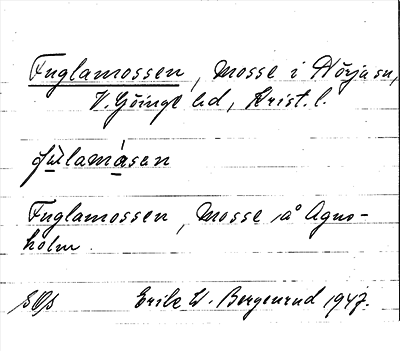 Fuglamossen, mosse i Nörja sn,
V. Göinge hd, Krist. l.
fulamåsen
Fuglamossen, mosse å Agns-
holm.
Erik W. Bergenrud 1947.